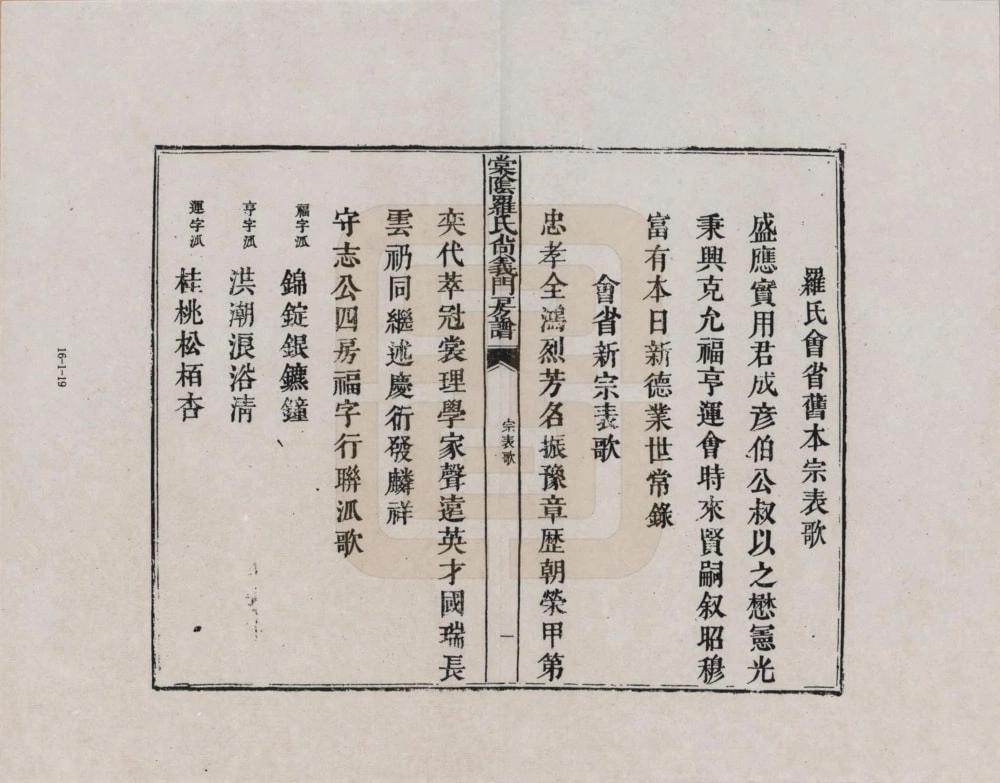 羅氏會省舊本宗表歌
盛應實用君成彥伯公叔以之懋憲光
秉興克允福亨運會時來賢嗣叙昭穆
富有本日新德業世常錄
會省新宗表歌
忠孝全鴻烈芳名振豫章歷朝榮甲第
棠陰羅氏尙義門房譜
宗表歌
一
奕代萃冠裳理學家聲遠英才國瑞長
雲礽同繼述慶衍發麟祥
守志公四房福字行聯派歌
福字派 錦錠銀鑣鐘
亨字派 洪潮浪浴清
運字派 桂桃松栢杏
16-1-19